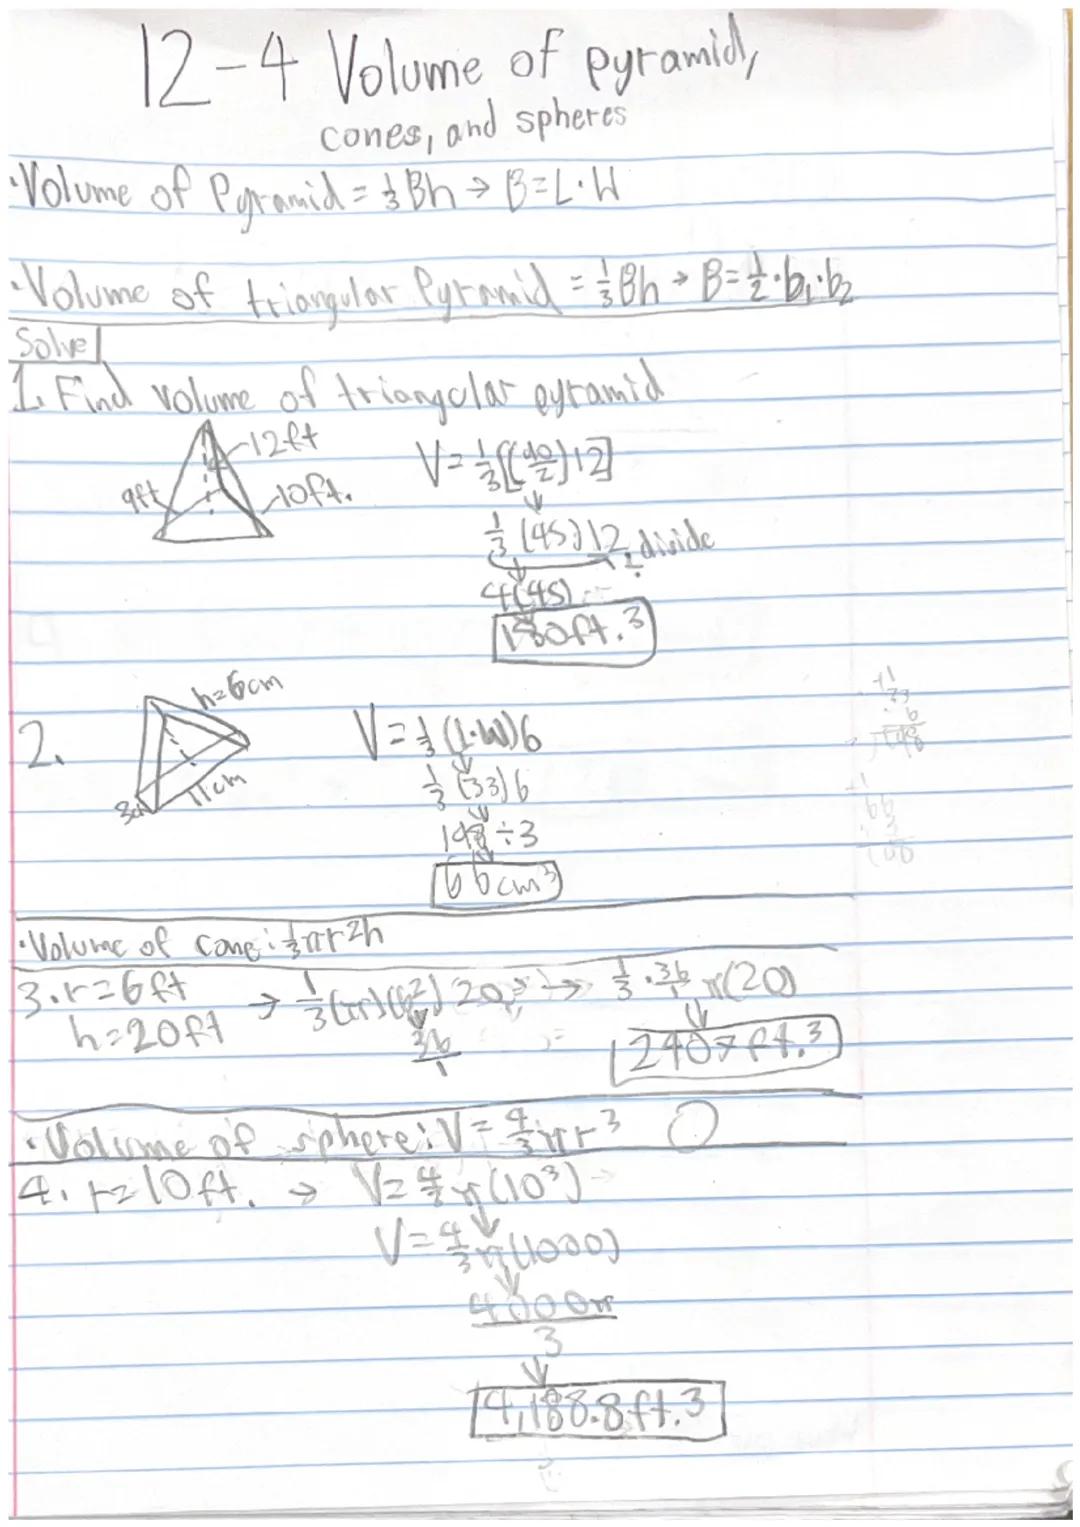 12-4 Volume of pyramid,
cones, and spheres
·Volume of Pyramid = 1/3 Bh → B=L·W
·Volume of triangular Pyramid = 1/3 Bh → B = 1/2 · b₁ · b₂
Solve
1. Find volume of triangular pyramid
12ft
9ft
10ft.
V = 1/3 [(90/2)12]
1/3 (45) 12 divide
4(45)
180ft.³
2.
h=6cm
11cm
V = 1/3 (l·w)6
1/3 (33) 6
198 ÷ 3
66cm³
·Volume of cone: 1/3 πr²h
3. r=6ft → 1/3 (π)(6²) 20 → 1/3 · 36/1 π(20)
h=20ft
36/1
240π ft.³
·Volume of sphere: V = 4/3 πr³
4. r=10ft. → V = 4/3 π(10³)
V = 4/3 π(1000)
4000π/3
4,188.8 ft.³